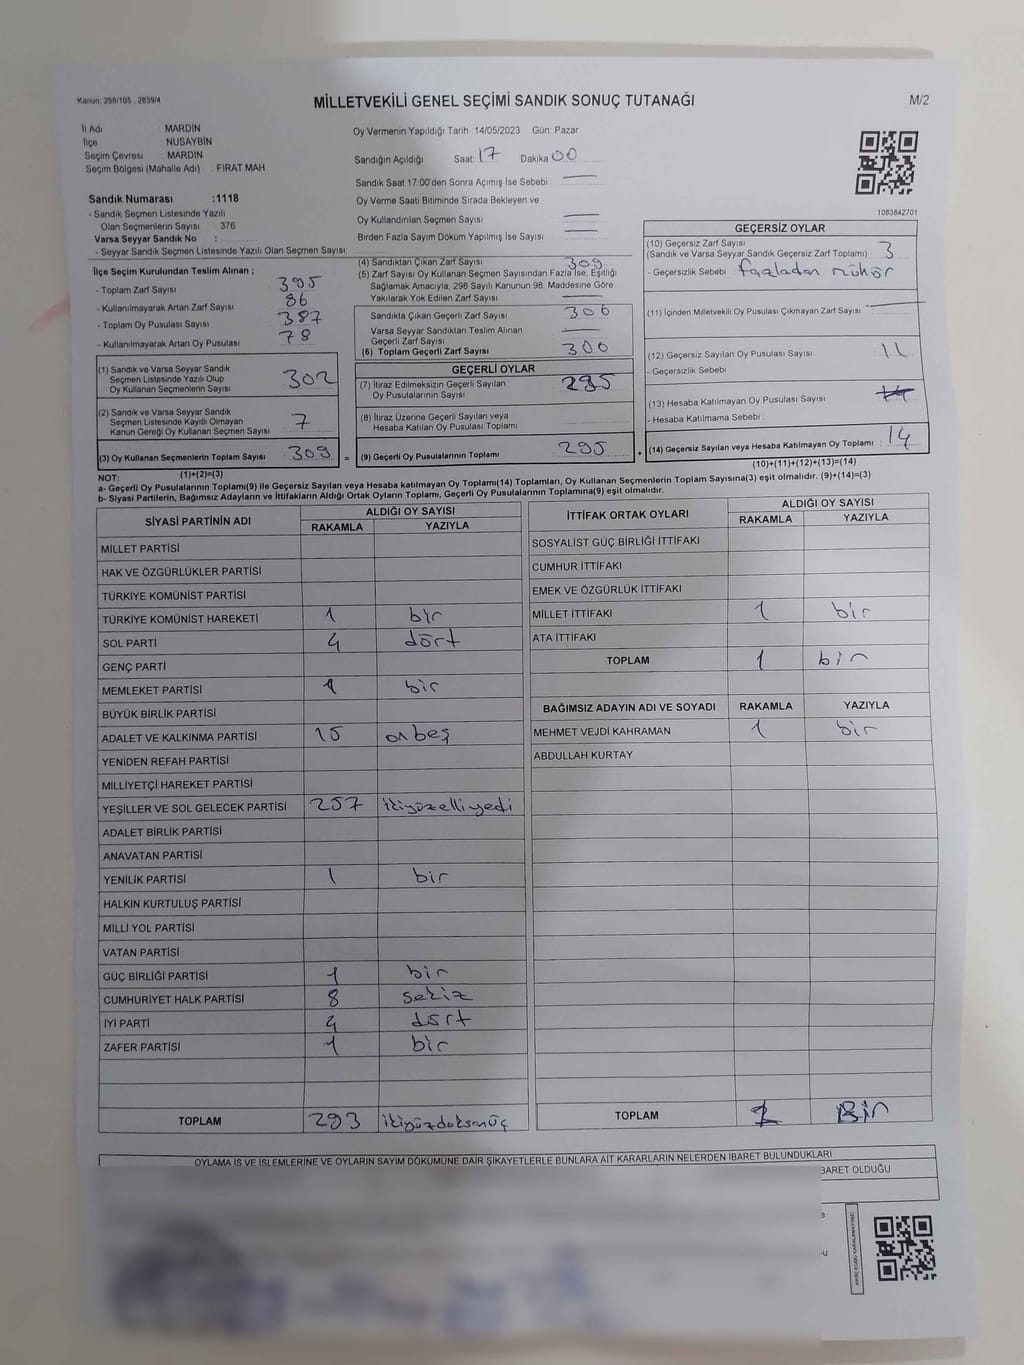 Kanun: 298/105 , 2839/4
MİLLETVEKİLİ GENEL SEÇİMİ SANDIK SONUÇ TUTANAĞI
M/2
İl Adı MARDİN
İlçe NUSAYBİN
Seçim Çevresi MARDİN
Seçim Bölgesi (Mahalle Adı) : FIRAT MAH
Oy Vermenin Yapıldığı Tarih :14/05/2023 Gün: Pazar
Sandığın Açıldığı Saat: 17 Dakika 00
Sandık Saat 17:00'den Sonra Açımış İse Sebebi :
Oy Verme Saati Bitiminde Sırada Bekleyen ve
Oy Kullandırılan Seçmen Sayısı
Birden Fazla Sayım Döküm Yapılmış İse Sayısı
1083842701
Sandık Numarası :1118
- Sandık Seçmen Listesinde Yazılı
Olan Seçmenlerin Sayısı : 376
Varsa Seyyar Sandık No :
- Seyyar Sandık Seçmen Listesinde Yazılı Olan Seçmen Sayısı:
İlçe Seçim Kurulundan Teslim Alınan ;
- Toplam Zarf Sayısı : 395
- Kullanılmayarak Artan Zarf Sayısı : 86
- Toplam Oy Pusulası Sayısı : 387
- Kullanılmayarak Artan Oy Pusulası : 78
(1) Sandık ve Varsa Seyyar Sandık
Seçmen Listesinde Yazılı Olup
Oy Kullanan Seçmenlerin Sayısı : 302
(2) Sandık ve Varsa Seyyar Sandık
Seçmen Listesinde Kayıtlı Olmayan
Kanun Gereği Oy Kullanan Seçmen Sayısı : 7
(3) Oy Kullanan Seçmenlerin Toplam Sayısı : 309
(1)+(2)=(3)
(4) Sandıktan Çıkan Zarf Sayısı : 309
(5) Zarf Sayısı Oy Kullanan Seçmen Sayısından Fazla İse, Eşitliği
Sağlamak Amacıyla, 298 Sayılı Kanunun 98. Maddesine Göre
Yakılarak Yok Edilen Zarf Sayısı
Sandıkta Çıkan Geçerli Zarf Sayısı : 306
Varsa Seyyar Sandıktan Teslim Alınan
Geçerli Zarf Sayısı
(6) Toplam Geçerli Zarf Sayısı : 306
GEÇERLİ OYLAR
(7) İtiraz Edilmeksizin Geçerli Sayılan
Oy Pusulalarının Sayısı : 295
(8) İtiraz Üzerine Geçerli Sayılan veya
Hesaba Katılan Oy Pusulası Toplamı
= (9) Geçerli Oy Pusulalarının Toplamı : 295
GEÇERSİZ OYLAR
(10) Geçersiz Zarf Sayısı
(Sandık ve Varsa Seyyar Sandık Geçersiz Zarf Toplamı) : 3
- Geçersizlik Sebebi : fazladan mühür
(11) İçinden Milletvekili Oy Pusulası Çıkmayan Zarf Sayısı :
(12) Geçersiz Sayılan Oy Pusulası Sayısı : 11
- Geçersizlik Sebebi
(13) Hesaba Katılmayan Oy Pusulası Sayısı :
- Hesaba Katılmama Sebebi :
+ (14) Geçersiz Sayılan veya Hesaba Katılmayan Oy Toplamı : 14
(10)+(11)+(12)+(13)=(14)
NOT:
a- Geçerli Oy Pusulalarının Toplamı(9) ile Geçersiz Sayılan veya Hesaba katılmayan Oy Toplamı(14) Toplamları, Oy Kullanan Seçmenlerin Toplam Sayısına(3) eşit olmalıdır. (9)+(14)=(3)
b- Siyasi Partilerin, Bağımsız Adayların ve İttifakların Aldığı Ortak Oyların Toplamı, Geçerli Oy Pusulalarının Toplamına(9) eşit olmalıdır.
SİYASİ PARTİNİN ADI
ALDIĞI OY SAYISI
RAKAMLA YAZIYLA
MİLLET PARTİSİ
HAK VE ÖZGÜRLÜKLER PARTİSİ
TÜRKİYE KOMÜNİST PARTİSİ
TÜRKİYE KOMÜNİST HAREKETİ 1 bir
SOL PARTİ 4 dört
GENÇ PARTİ
MEMLEKET PARTİSİ 1 bir
BÜYÜK BİRLİK PARTİSİ
ADALET VE KALKINMA PARTİSİ 15 onbeş
YENİDEN REFAH PARTİSİ
MİLLİYETÇİ HAREKET PARTİSİ
YEŞİLLER VE SOL GELECEK PARTİSİ 257 ikiyüzelliyedi
ADALET BİRLİK PARTİSİ
ANAVATAN PARTİSİ
YENİLİK PARTİSİ 1 bir
HALKIN KURTULUŞ PARTİSİ
MİLLİ YOL PARTİSİ
VATAN PARTİSİ
GÜÇ BİRLİĞİ PARTİSİ 1 bir
CUMHURİYET HALK PARTİSİ 8 sekiz
İYİ PARTİ 4 dört
ZAFER PARTİSİ 1 bir
TOPLAM 293 ikiyüzdoksanüç
İTTİFAK ORTAK OYLARI
ALDIĞI OY SAYISI
RAKAMLA YAZIYLA
SOSYALİST GÜÇ BİRLİĞİ İTTİFAKI
CUMHUR İTTİFAKI
EMEK VE ÖZGÜRLÜK İTTİFAKI
MİLLET İTTİFAKI 1 bir
ATA İTTİFAKI
TOPLAM 1 bir
BAĞIMSIZ ADAYIN ADI VE SOYADI RAKAMLA YAZIYLA
MEHMET VEJDİ KAHRAMAN 1 bir
ABDULLAH KURTAY
TOPLAM 1 BİR
OYLAMA İŞ VE İŞLEMLERİNE VE OYLARIN SAYIM DÖKÜMÜNE DAİR ŞİKAYETLERLE BUNLARA AİT KARARLARIN NELERDEN İBARET BULUNDUKLARI
BARET OLDUĞU